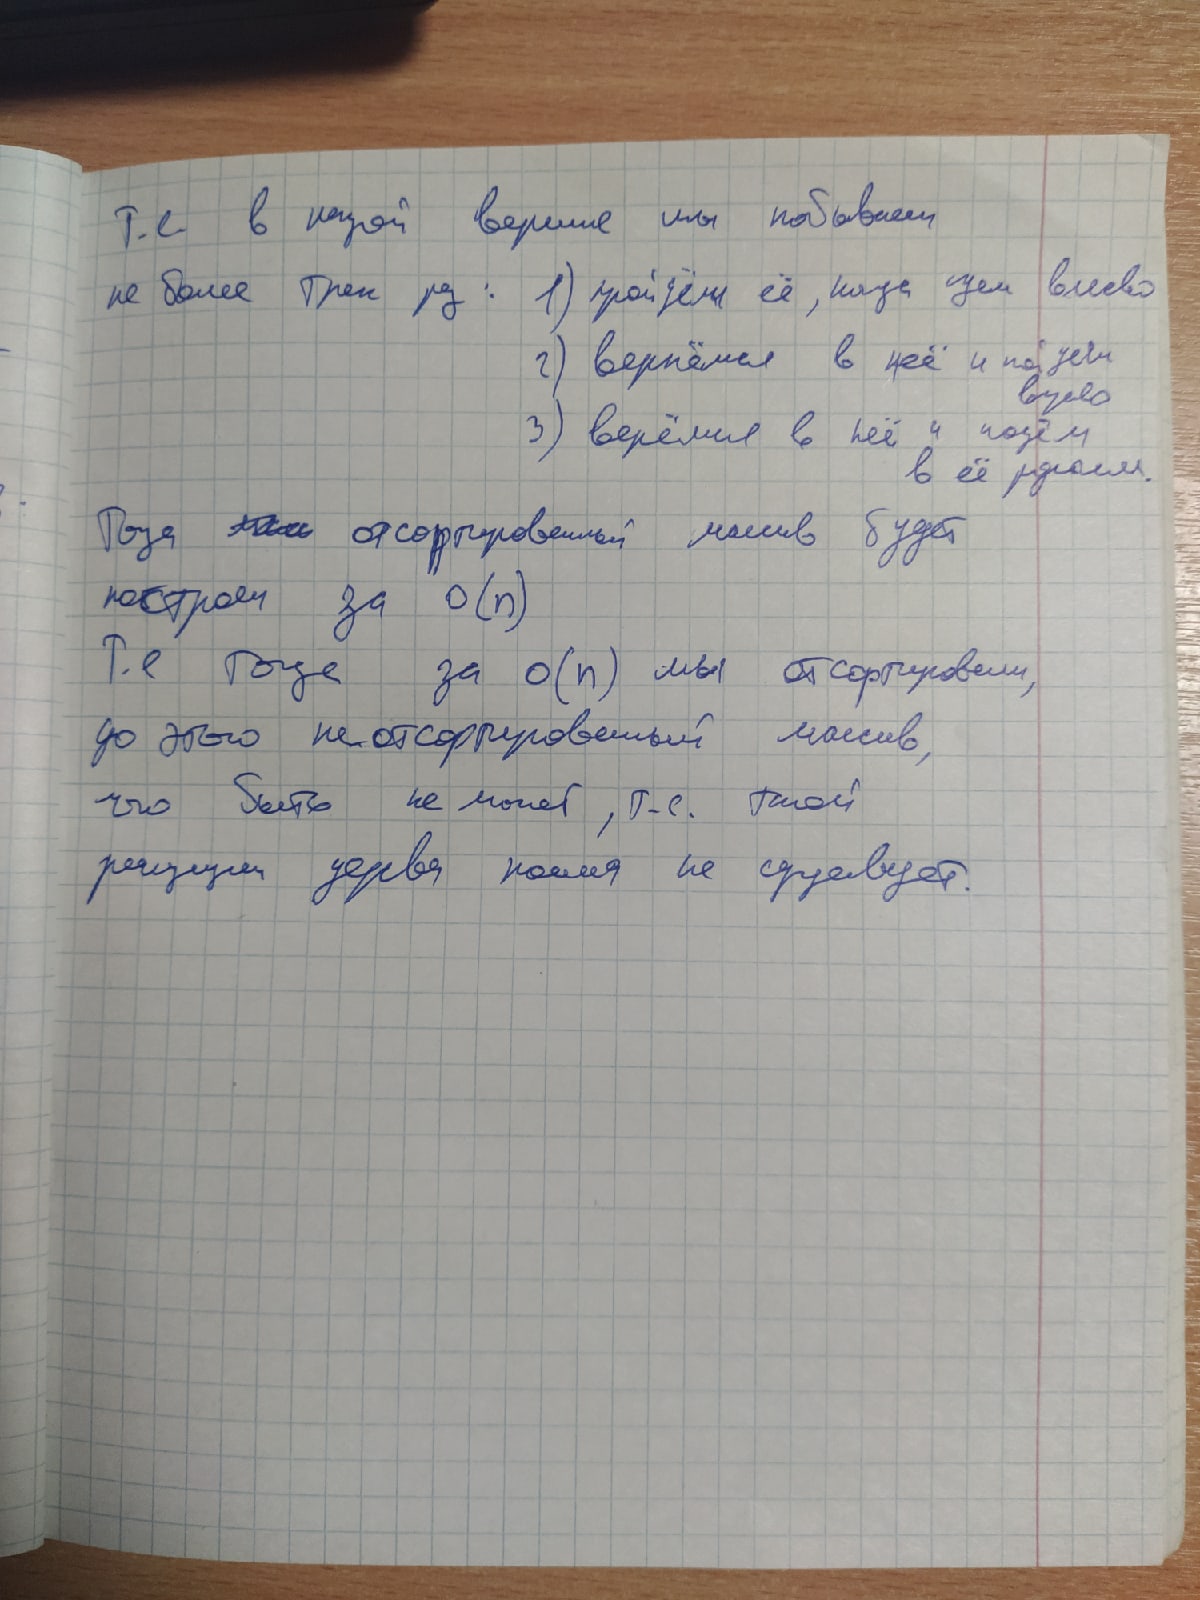 Т.е. в каждой вершине мы побываем
не более трех раз: 1) пройдём её, когда идем влево
2) вернёмся в неё и пойдём
вправо
3) верёмся в неё и пойдём
в её родителя.
Тогда отсортированный массив будет
построен за O(n)
Т.е тогда за O(n) мы отсортировали,
до этого неотсортированный массив,
что быть не может, т-е. такой
реализации дерева поиска не существует.